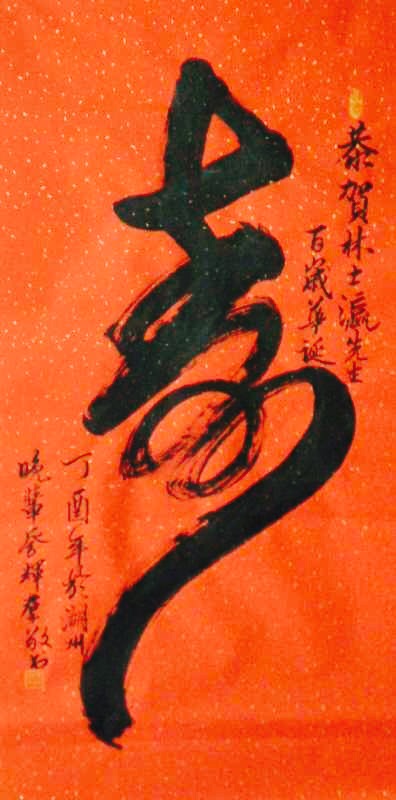 恭賀林士瀛先生
百歲華誕
壽
丁酉年於湖州
晚輩
敬書